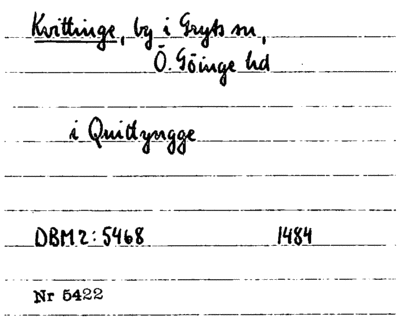 Kvittinge, by i Gryts sn,
Ö. Göinge hd
i Quitlyngge
DBM 2: 5468 1484
Nr 5422